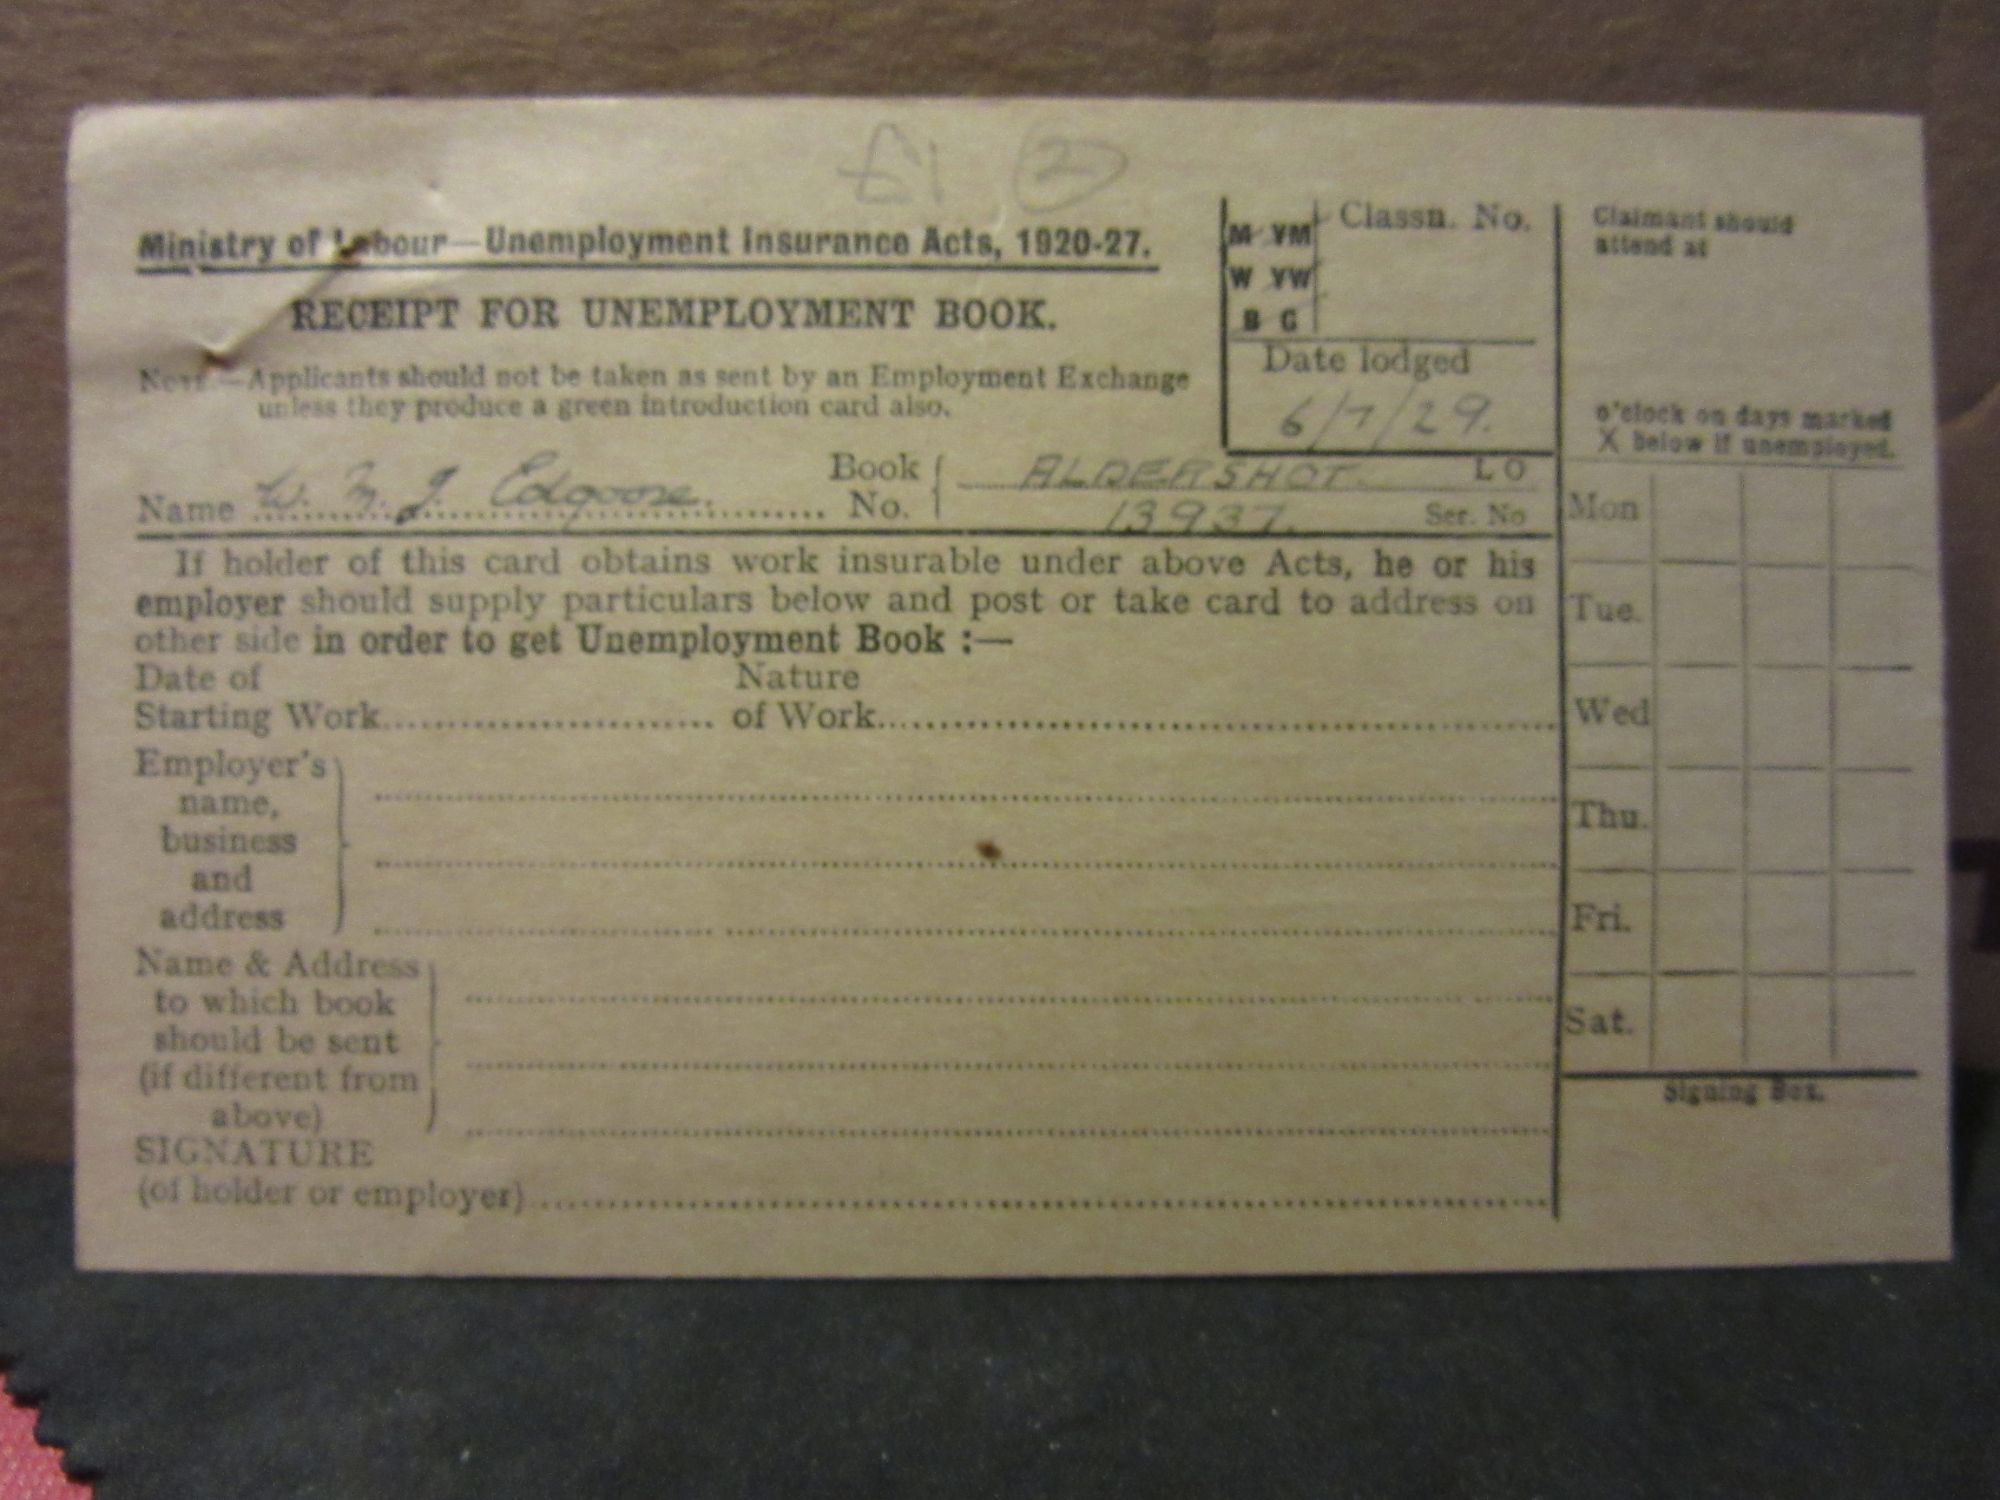 £1 2
Ministry of Labour—Unemployment Insurance Acts, 1920-27.
RECEIPT FOR UNEMPLOYMENT BOOK.
NOTE.—Applicants should not be taken as sent by an Employment Exchange
unless they produce a green introduction card also.
M YM
W YW
B G
Classn. No.
Date lodged
6/7/29.
Claimant should
attend at
o'clock on days marked
X below if unemployed.
Name W. M. J. Edgoose.
Book No. ALDERSHOT. L O
13937. Ser. No
If holder of this card obtains work insurable under above Acts, he or his
employer should supply particulars below and post or take card to address on
other side in order to get Unemployment Book :—
Date of
Starting Work
Nature
of Work
Employer's
name,
business
and
address
Name & Address
to which book
should be sent
(if different from
above)
SIGNATURE
(of holder or employer)
Mon
Tue.
Wed
Thu.
Fri.
Sat.
Signing Box.